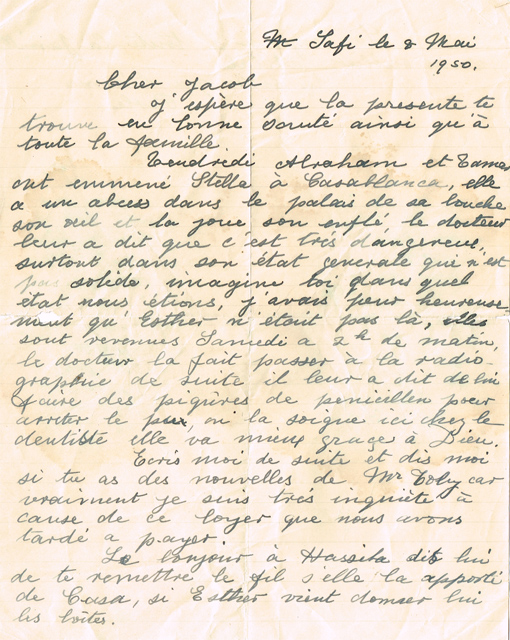 Safi le 8 Mai
1950.
Cher Jacob
J'espère que la presente te
trouve en bonne santé ainsi qu'à
toute la famille.
Vendredi Abraham et
ont emmené Stelle à Casablanca, elle
a un abces dans le palais de sa bouche
son œil et la joue son enflé, le docteur
leur a dit que c'est très dangereux,
surtout dans son état generale qui n'est
pas solide, imagine toi dans quel
état nous étions, j'avais peur heureuse
ment qu'Esther n'était pas là, elles
sont revenues Samedi a 2h de matin,
le docteur la fait passer à la radio
graphie de suite il leur a dit de lui
faire des piqûres de penicillen pour
arrêter le pus, on la soigne ici chez le
dentiste elle va mieux grace à Dieu.
Ecris moi de suite et dis moi
si tu as des nouvelles de Mr Toby car
vraiment je suis très inquiète à
cause de ce loyer que nous avons
tardé a payer.
Le bonjour à Hassiba dis lui
de te remettre le fil s'elle la apporté
de Casa, si Esther vient donner lui
les boites.